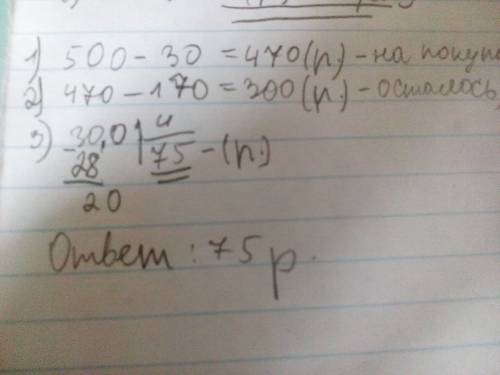 1) 500 - 30 = 470(р) - на покуп
2) 470 - 170 = 300(р) - осталось
3) 300 | 4
28 | 75 - (р.)
20
Ответ: 75 р.